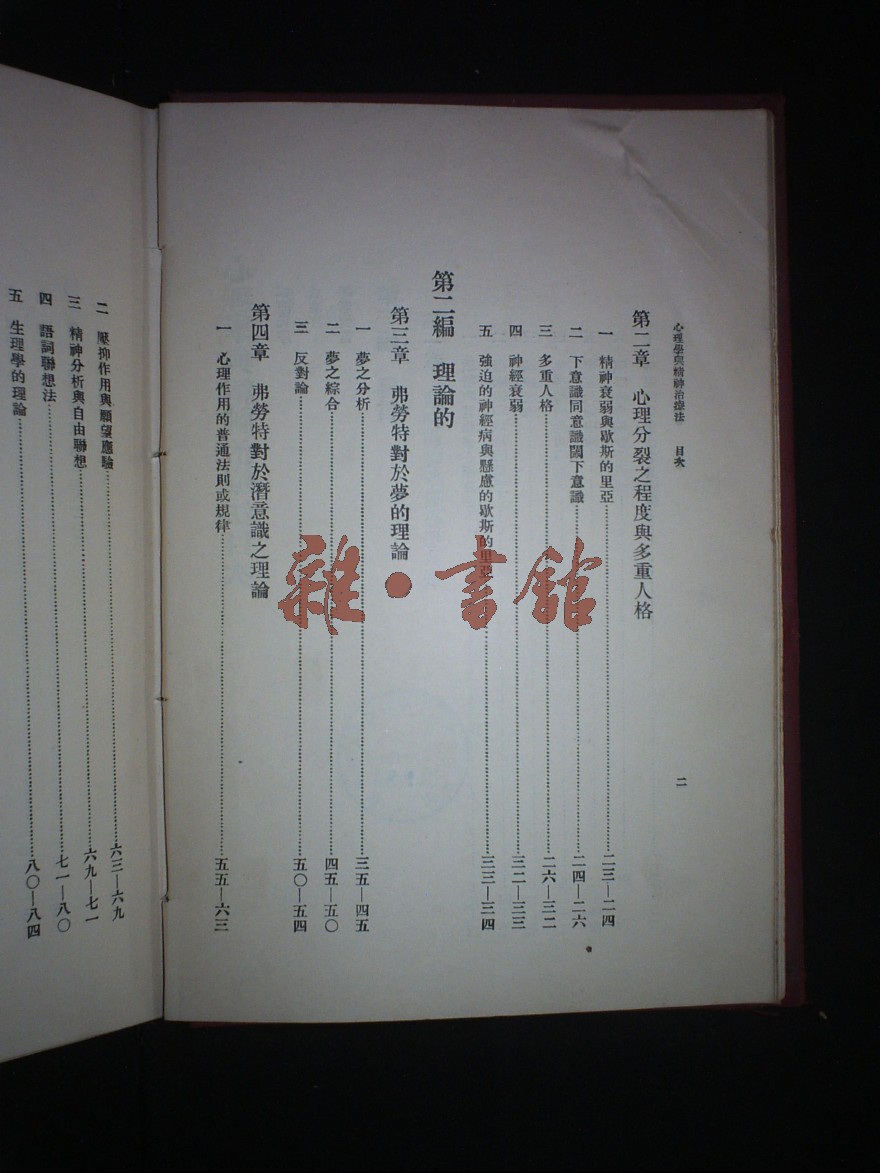 心理學與精神治療法　目次
二
第二章　心理分裂之程度與多重人格
一　精神衰弱與歇斯的里亞……二三—二四
二　下意識同意識閾下意識……二四—二六
三　多重人格……二六—三二
四　神經衰弱……三二—三三
五　強迫的神經病與懸慮的歇斯的里亞……三三—三四
第二編　理論的
第三章　弗勞特對於夢的理論
一　夢之分析……三五—四五
二　夢之綜合……四五—五〇
三　反對論……五〇—五四
第四章　弗勞特對於潛意識之理論
一　心理作用的普通法則或規律……五五—六三
二　壓抑作用與願望應驗……六三—六九
三　精神分析與自由聯想……六九—七一
四　語詞聯想法……七一—八〇
五　生理學的理論……八〇—八四
雜·書館